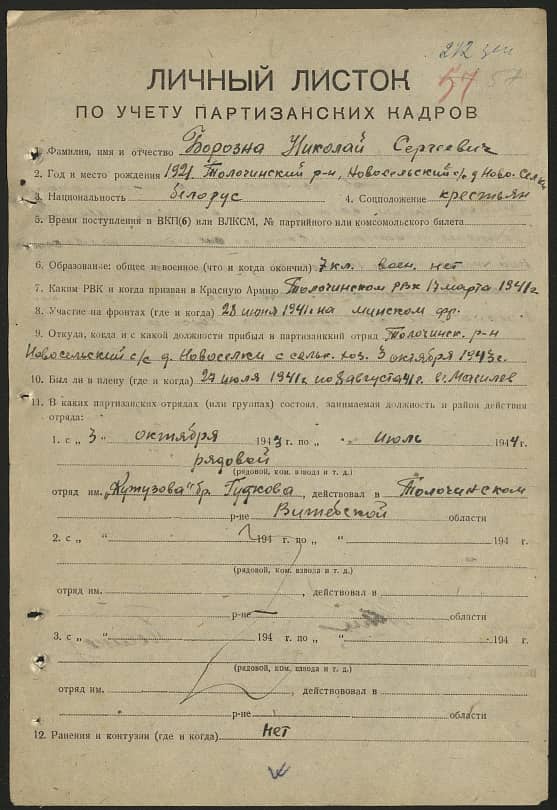 242
54 57
ЛИЧНЫЙ ЛИСТОК
ПО УЧЕТУ ПАРТИЗАНСКИХ КАДРОВ
1. Фамилия, имя и отчество Борозна Николай Сергеевич
2. Год и место рождения 1921 Толочинский р-н, Новосельский с/с д. Ново-Селки
3. Национальность белорус 4. Соцположение крестьян
5. Время поступления в ВКП(б) или ВЛКСМ, № партийного или комсомольского билета
6. Образование: общее и военное (что и когда окончил) 7 кл. воен. нет
7. Каким РВК и когда призван в Красную Армию Толочинском РВК 17 марта 1941 г
8. Участие на фронтах (где и когда) 28 июня 1941 г. на минском фр.
9. Откуда, когда и с какой должности прибыл в партизанский отряд Толочинск. р-н
Новосельский с/с д. Новоселки с сельк. хоз. 3 октября 1943 г.
10. Был ли в плену (где и когда) 27 июля 1941 г по 8 августа 41 г. в г. Могилев
11. В каких партизанских отрядах (или группах) состоял, занимаемая должность и район действия
отряда:
1. с „ 3 “ октября 1943 г. по „ “ июль 1944 г.
рядовой
(рядовой, ком. взвода и т. д.)
отряд им. „Кутузова“ бр. Гудкова, действовал в Толочинском
р-не Витебской области
2. с „ “ 194 г. по „ “ 194 г.
(рядовой, ком. взвода и т. д.)
отряд им. , действовал в
р-не области
3. с „ “ 194 г. по „ “ 194 г.
(рядовой, ком. взвода и т. д.)
отряд им. , действовал в
р-не области
12. Ранения и контузии (где и когда) Нет